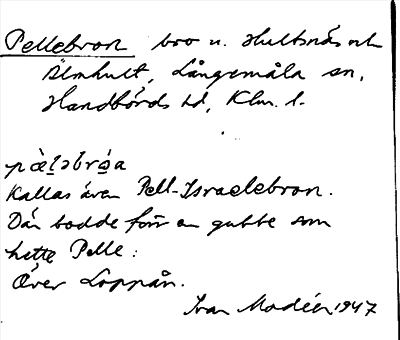 Pellebron bro u. Hultsnäs och
Älmhult, Långemåla sn,
Handbörds hd, Klm. l.
pæ̀lәbrọ́a
Kallas även Pell-Israelebron.
Där bodde förr en gubbe som
hette Pelle.
Över Loppån.
Ivar Modéer 1947